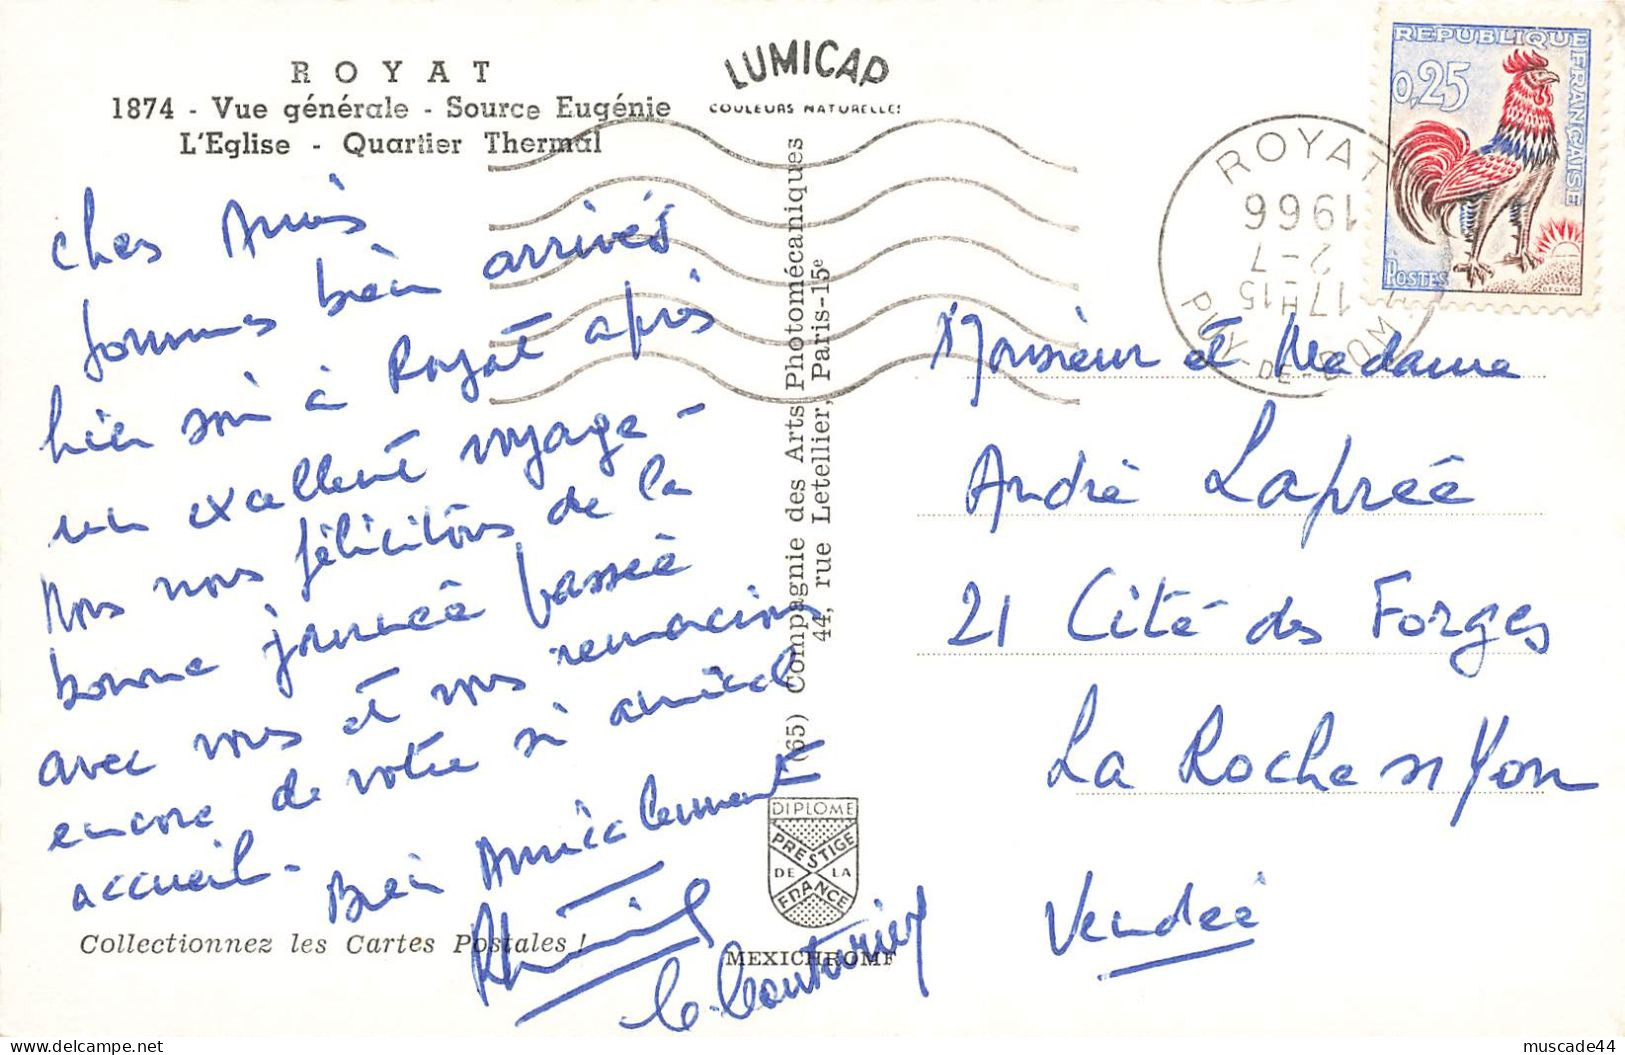 ROYAT
1874 - Vue générale - Source Eugénie
L'Eglise - Quartier Thermal
LUMICAP
COULEURS NATURELLES
REPUBLIQUE FRANÇAISE
0,25
POSTES
DECARIS
ROYAT
17H15
2-7
1966
PUY-DE-DOME
Chers Amis
sommes bien arrivés
hier soir à Royat après
un excellent voyage -
Nous nous félicitons de la
bonne journée passée
avec vous et vous remercions
encore de votre si amical
accueil -
Bien Amicalement
C. Couturier
Monsieur et Madame
André Laprée
21 Cité des Forges
La Roche s/ Yon
Vendée
(65) Compagnie des Arts Photomécaniques
44, rue Letellier, Paris-15e
DIPLOME
PRESTIGE
DE LA
FRANCE
MEXICHROME
Collectionnez les Cartes Postales !
muscade44